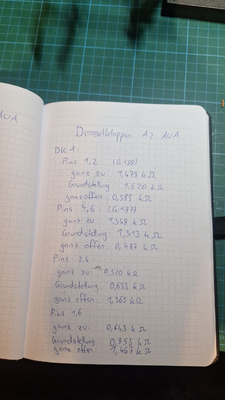 Drosselklappen A2 AUA
DK 1:
Pins 1,2 (G187)
ganz zu: 1,479 kΩ
Grundstellung: 1,520 kΩ
ganz offen: 0,585 kΩ
Pins 4,6: (G187)
ganz zu: 1,368 kΩ
Grundstellung: 1,313 kΩ
ganz offen: 0,487 kΩ
Pins 2,4:
ganz zu: 0,510 kΩ
Grundstellung: 0,633 kΩ
ganz offen: 1,365 kΩ
Pins 1,6
ganz zu: 0,643 kΩ
Grundstellung: 0,953 kΩ
ganz offen: 1,467 kΩ